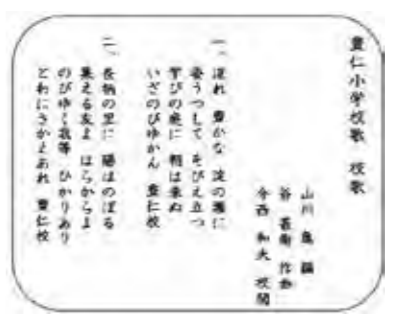 豊仁小学校歌 校歌
山川
谷 作曲
今西 和夫 校閲
一、流れ 豊かな 淀の瀬に
姿うつして そびえ立つ
学びの庭に 朝は来ぬ
いざのびゆかん 豊仁校
二、長柄の里に 陽はのぼる
集える友よ はらからよ
のびゆく我等 ひかりあり
とわにさかえあれ 豊仁校